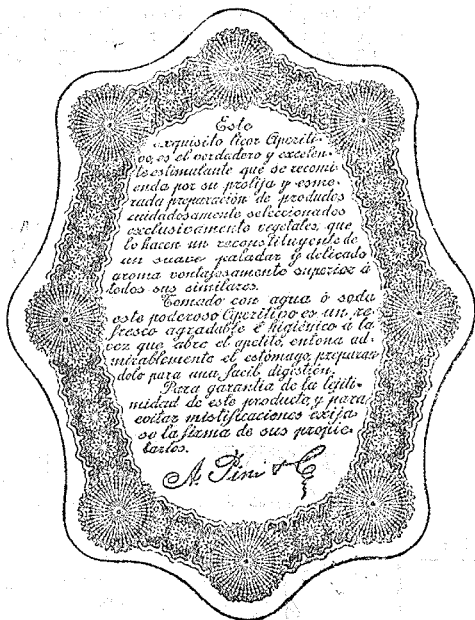 Este
exquisito licor Aperiti-
vo, es el verdadero y excelen-
te estimulante que se recomi-
enda por su prolija y esme-
rada preparación de productos
cuidadosamente seleccionados
exclusivamente vegetales, que
lo hacen un reconstituyente de
un suave paladar y delicado
aroma ventajosamente superior á
todos sus similares.
Tomado con agua ó soda
este poderoso Aperitivo es un re-
fresco agradable é higiénico á la
vez que abre el apetito, entona ad-
mirablemente el estómago, preparan-
dolo para una facil digestión.
Para garantia de la lejiti-
midad de este producto y para
evitar mistificaciones exija-
se la firma de sus propie-
tarios.
A. Pini & C